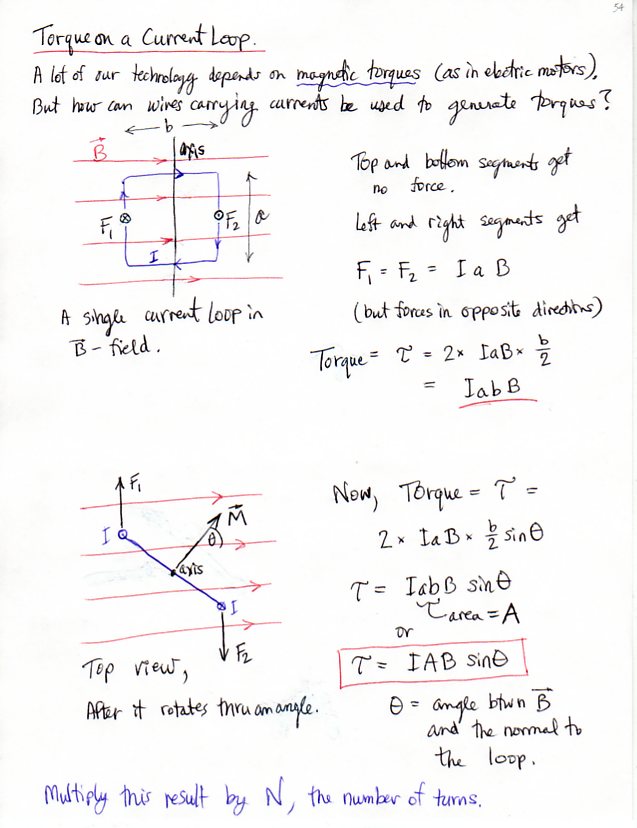 54
Torque on a Current Loop.
A lot of our technology depends on magnetic torques (as in electric motors).
But how can wires carrying currents be used to generate torques?
← b →
B
axis
F₁
F₂
a
I
A single current loop in
B - field.
Top and bottom segments get
no force.
Left and right segments get
F₁ = F₂ = I a B
(but forces in opposite directions)
Torque = τ = 2 × IaB × b/2
= IabB
F₁
I
M
θ
axis
I
F₂
Top view,
After it rotates thru an angle.
Now, Torque = τ =
2 × IaB × b/2 sinθ
τ = IabB sinθ
area = A
or
τ = IAB sinθ
θ = angle btwn B
and the normal to
the loop.
Multiply this result by N, the number of turns.